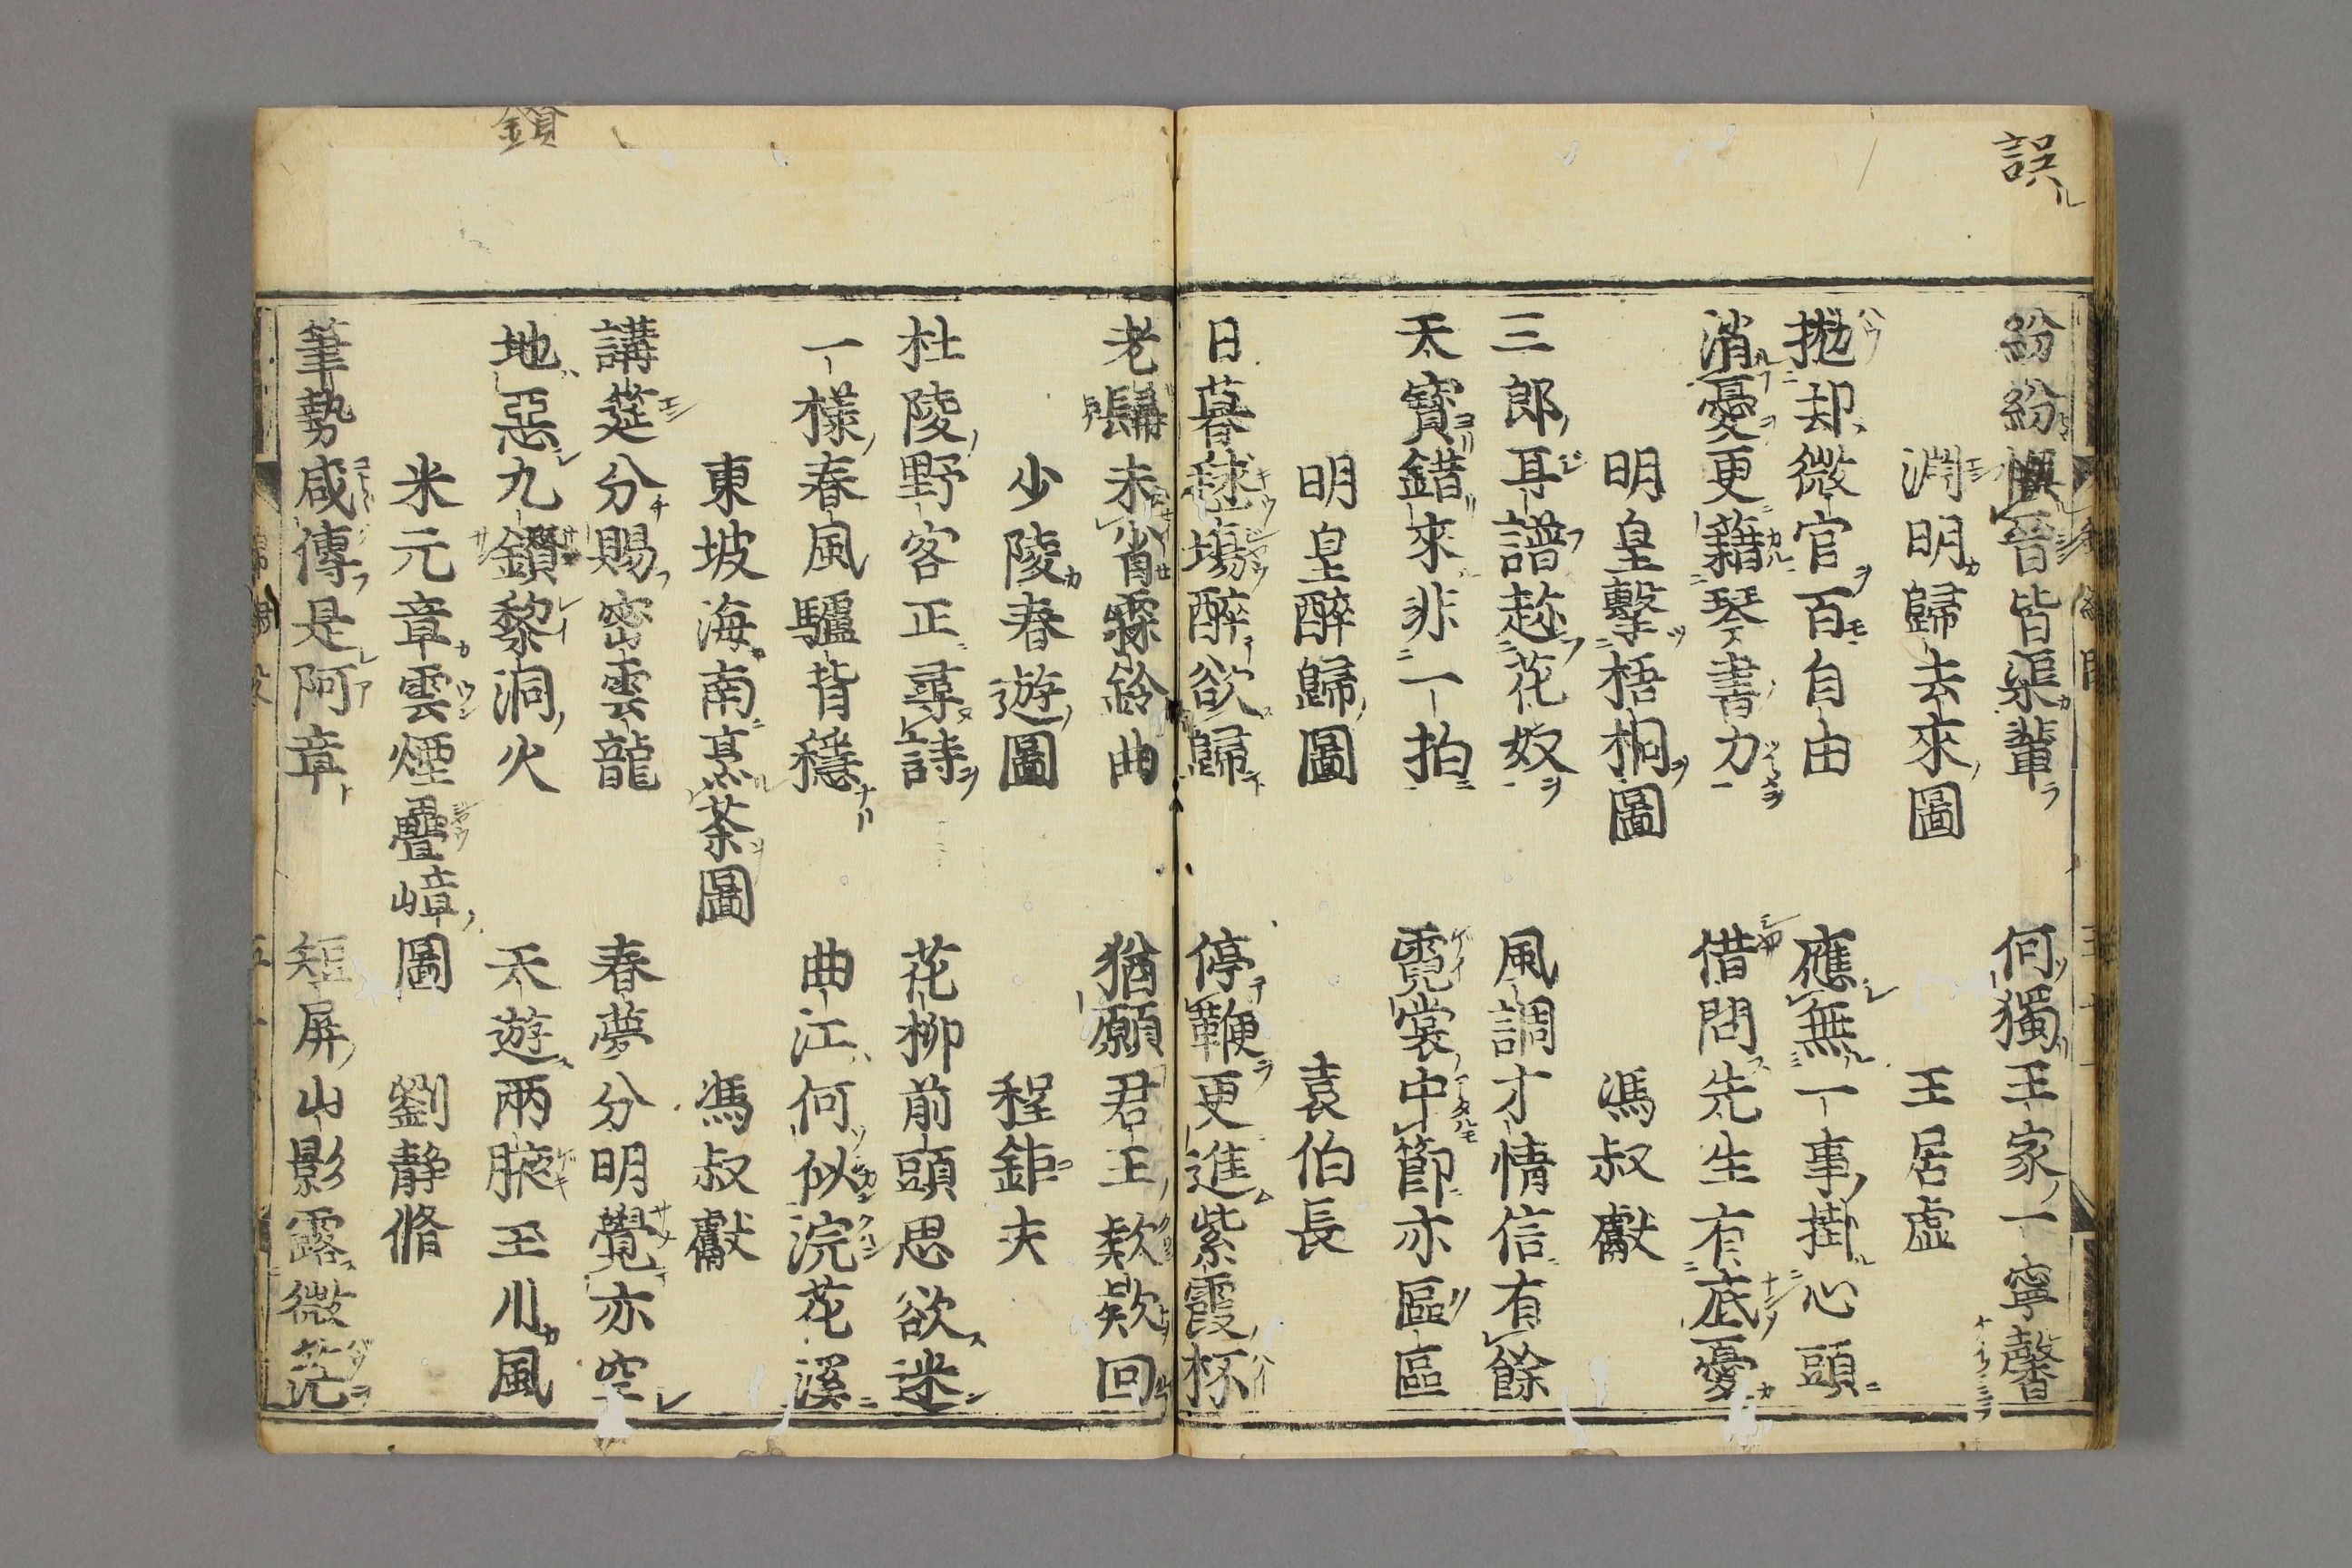 誤
紛紛 晉皆渠輩 何獨王家一寧馨
淵明歸去來圖 王居虛
拋却微官百自由 應無一事掛心頭
消憂更藉琴書力 借問先生有底憂
明皇擊梧桐圖 馮叔獻
三郎耳譜趂花奴 風調才情信有餘
天寶錯來非一拍 霓裳中節亦區區
明皇醉歸圖 袁伯長
日暮毬場醉欲歸 停鞭更進紫霞杯
老髯未省霖鈴曲 猶願君王款款回
少陵春遊圖 程鉅夫
杜陵野客正尋詩 花柳前頭思欲迷
一樣春風驢背穩 曲江何似浣花溪
東坡海南烹茶圖 馮叔獻
講筵分賜密雲龍 春夢分明覺亦空
鎖
地惡九鑽黎洞火 天遊兩腋玉川風
米元章雲煙疊嶂圖 劉靜脩
筆勢咸傳是阿章 短屏山影露微茫